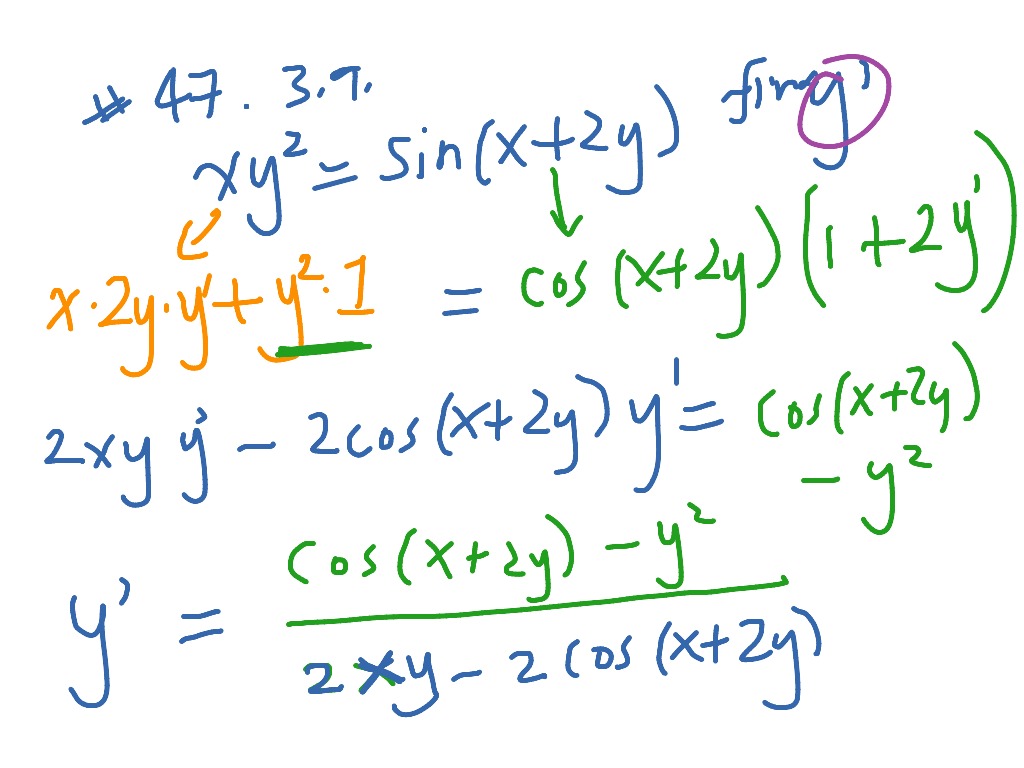 # 47. 3.9. find y'
xy² = sin(x+2y)
x·2y·y' + y²·1 = cos(x+2y)(1+2y')
2xy y' - 2cos(x+2y) y' = cos(x+2y)
- y²
y' = (cos(x+2y) - y²) / (2xy - 2cos(x+2y))